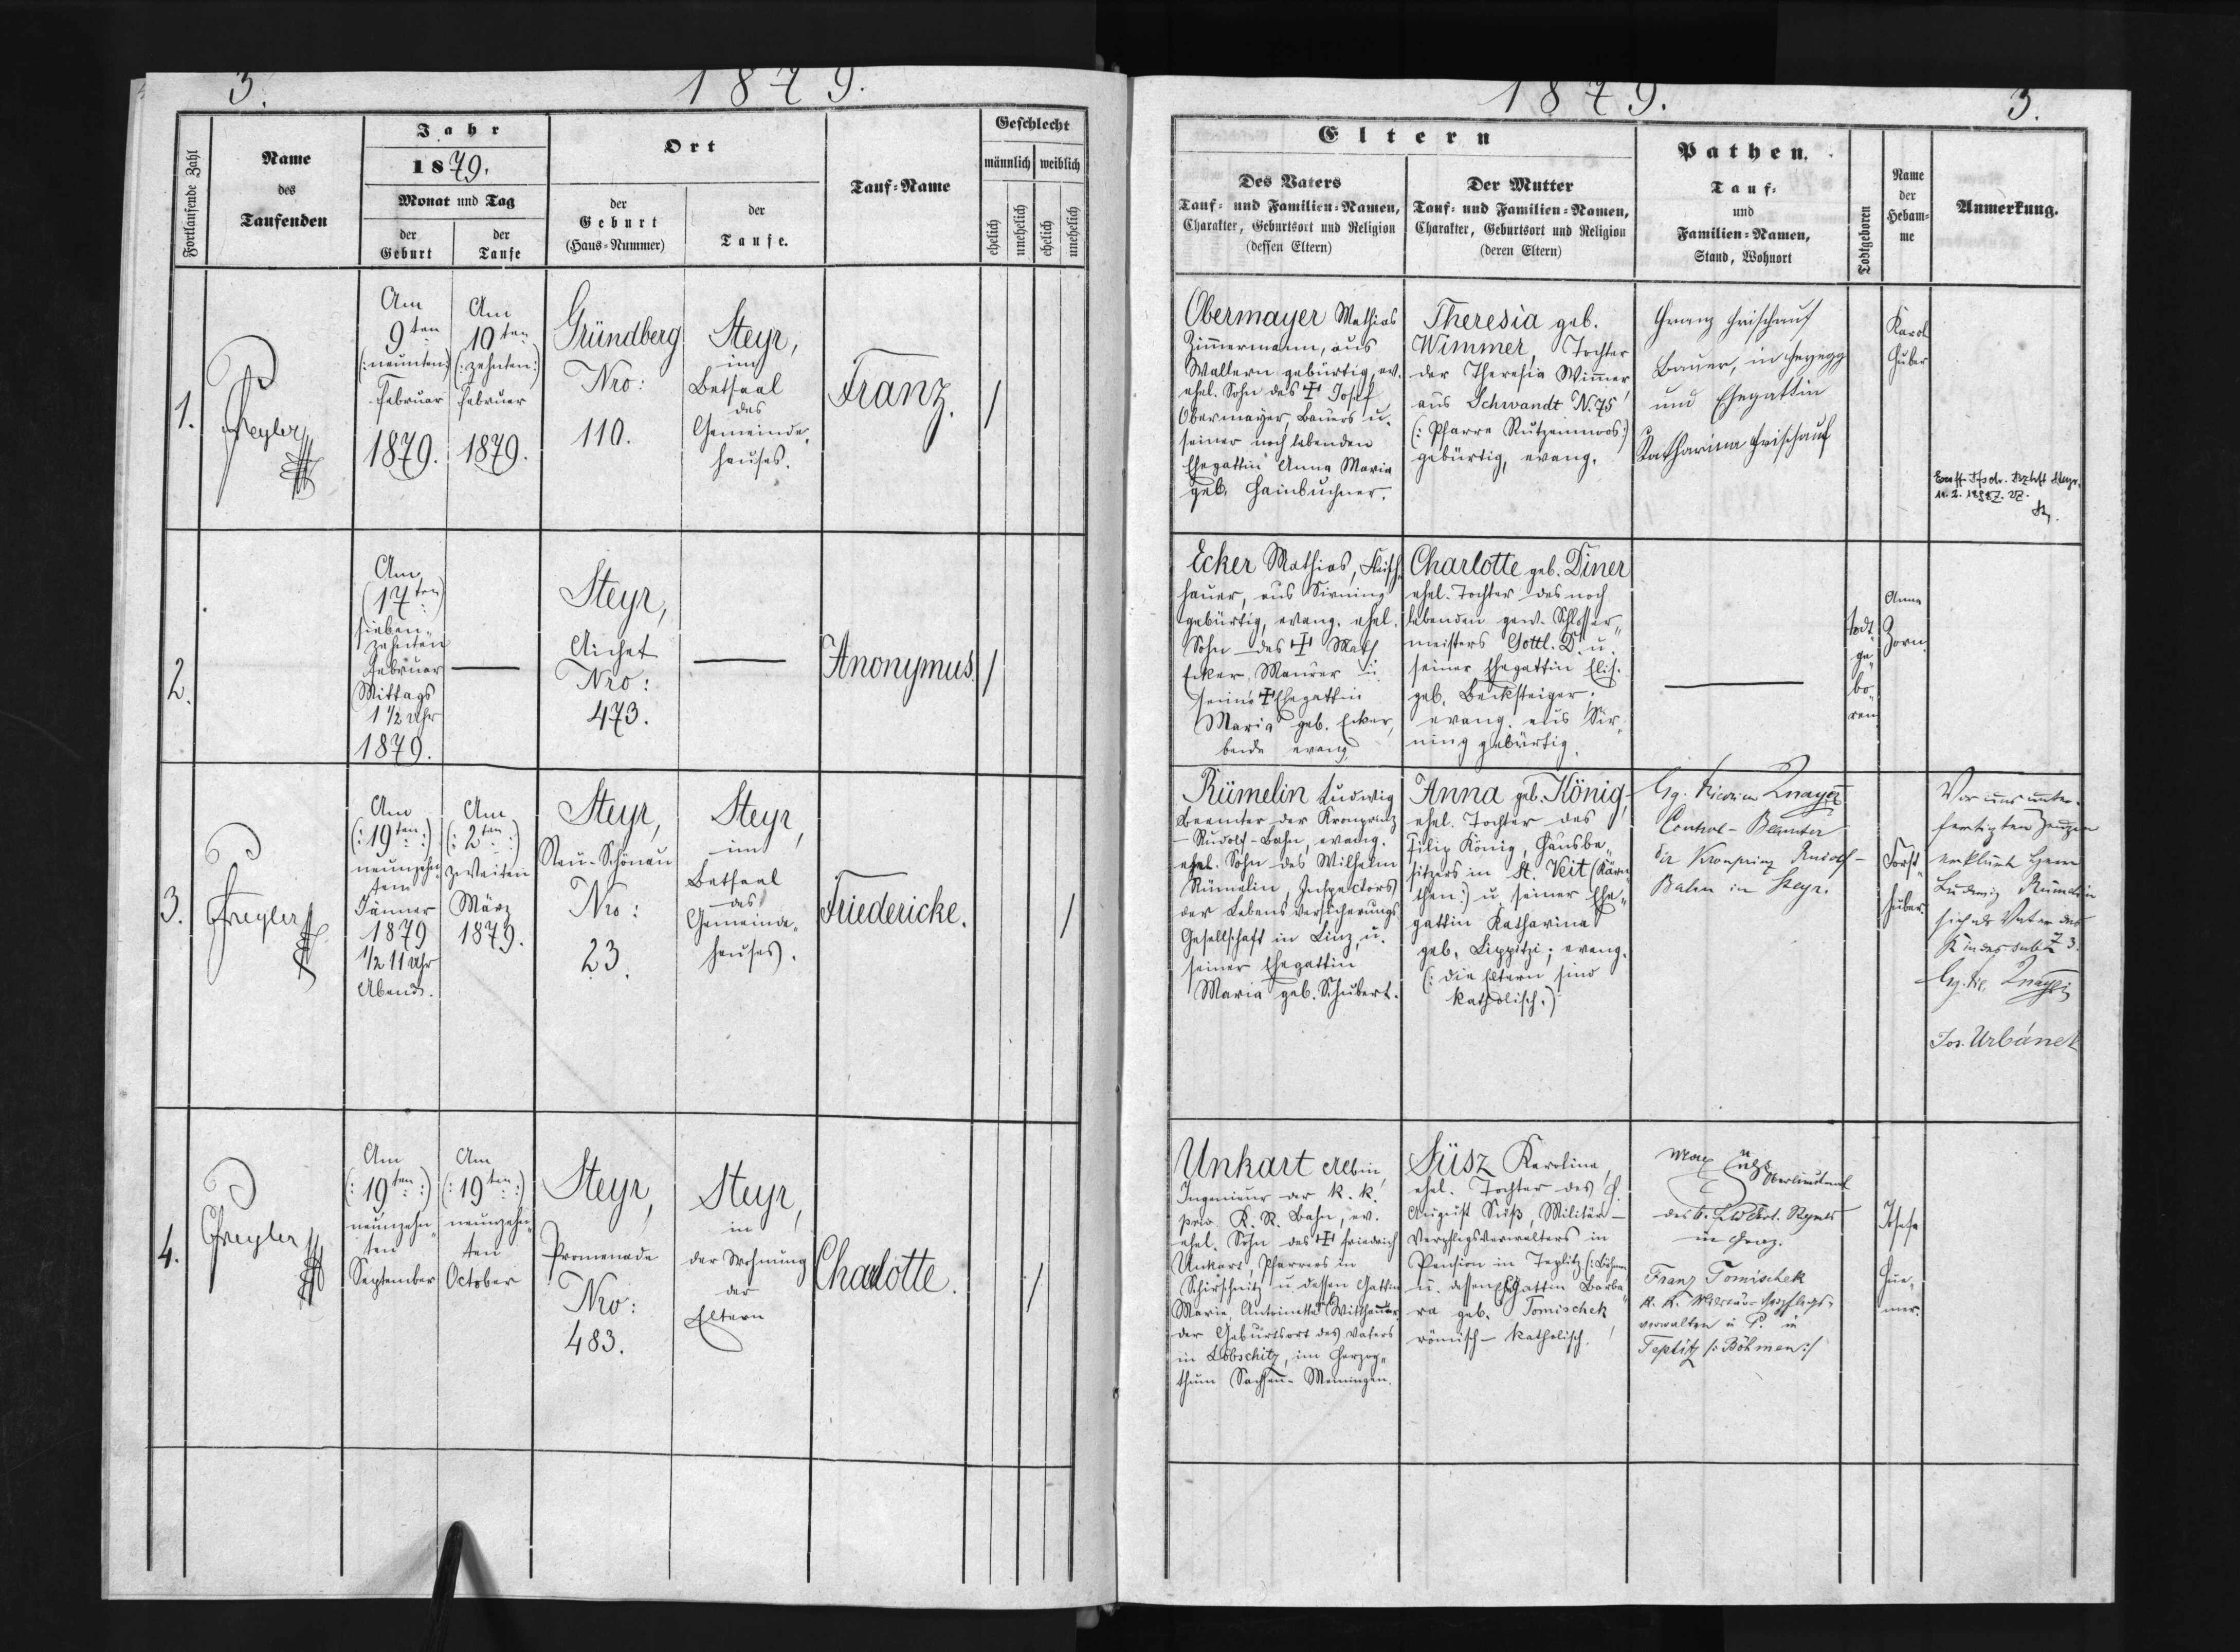 3.
1879.
Fortlaufende Zahl
Name
des
Taufenden
Jahr
1879.
Monat und Tag
der
Geburt
der
Taufe
Ort
der
Geburt
(Haus-Nummer)
der
Taufe.
Tauf-Name
Geschlecht
männlich
weiblich
ehelich
unehelich
ehelich
unehelich
1.
Am
9ten
(:neunten:)
Februar
1879.
Am
10ten
(:zehnten:)
Februar
1879.
Gründberg
Nro:
110.
Steyr,
im
Betsaal
des
Gemeinde-
hauses.
Franz.
/
2.
Am
(17ten)
sieben-
zehnten
Februar
Mittags
1 1/2 Uhr
1879.
—
Steyr,
Aichet
Nro:
473.
—
Anonymus.
/
3.
Am
(:19ten:)
neunzehn-
ten
Jänner
1879
1/2 11 Uhr
Abends.
Am
(:2ten:)
zweiten
März
1879.
Steyr,
Neu-Schönau
Nro:
23.
Steyr,
im
Betsaal
des
Gemeinde-
hauses.
Friedericke.
/
4.
Am
(:19ten:)
neunzehn-
ten
September
Am
(:19ten:)
neunzehn-
ten
October
Steyr,
Promenade
Nro:
483.
Steyr,
in
der Wohnung
der
Eltern
Charlotte.
/
1879.
3.
Eltern
Des Vaters
Tauf- und Familien-Namen,
Charakter, Geburtsort und Religion
(dessen Eltern)
Der Mutter
Tauf- und Familien-Namen,
Charakter, Geburtsort und Religion
(deren Eltern)
Pathen.
Tauf-
und
Familien-Namen,
Stand, Wohnort
Todtgeboren
Name
der
Hebam-
me
Anmerkung.
Obermayer Mathias
Zimmermann, aus
Wallern gebürtig, ev.
ehel. Sohn des † Josef
Obermayer, Bauers u.
seiner noch lebenden
Ehegattin Anna Maria
geb. Hainbuchner.
Theresia geb.
Wimmer, Tochter
der Theresia Wimmer
aus Schwandt N. 75
(: Pfarre Rutzenmoos:)
gebürtig, evang.
Franz Frischauf
Bauer, in
und Ehegattin
Katharina Frischauf
Karol
Huber
Ecker Mathias, Fleisch-
hauer, aus Sirning
gebürtig, evang. ehel.
Sohn des † Math
Ecker, Maurer u.
seiner † Ehegattin
Maria geb. Ecker,
beide evang.
Charlotte geb. Diner
ehel. Tochter des noch
lebenden gew. Schlosser-
meisters Gottl. D. u.
seiner Ehegattin Elis.
geb. Becksteiger.
evang. aus Sir-
ning gebürtig.
—
todt-
ge-
bo-
ren
Anna
Zorn.
Rümelin Ludwig
Beamter der Kronprinz
-Rudolf-Bahn, evang.
ehel. Sohn des Wilhelm
Rümelin, Inspectors
der Lebensversicherungs
Gesellschaft in Linz, u.
seiner Ehegattin
Maria geb. Schubert.
Anna geb. König,
ehel. Tochter des
Filip König, Hausbe-
sitzers in St. Veit (Kärn-
then:) u. seiner Ehe-
gattin Katharina
geb. Lippitzi; evang.
(: die Eltern sind
katholisch:)
Control-Beamter
der Kronprinz Rudolf-
Bahn in Steyr.
Forst-
huber.
Vor uns unter-
fertigten Zeugen
erklärt Herr
Ludwig Rümelin
sich als Vater des
Kindes sub Z 3.
Jos. Urbánek
Unkart Albin,
Ingenieur der k. k.
priv. K. R. Bahn, ev.
ehel. Sohn des † Friedrich
Unkart, Pfarrers in
Schirschnitz u. dessen Gattin
Marie Antoinette Witthauer
der Geburtsort des Vaters
in Löbschitz, im Herzog-
thum Sachsen-Meiningen.
Süsz Karolina,
ehel. Tochter des H.
August Süß, Militär-
Verpflegsverwalters in
Pension in Teplitz (:Böhmen
u. dessen Ehegattin Barba-
ra geb. Tomischek
römisch-katholisch.
Max Süß
Oberlieutenant
in Graz.
Franz Tomischek
k. k. Militär-Verpflegs-
verwalter in P. in
Teplitz /: Böhmen :/
Josefa